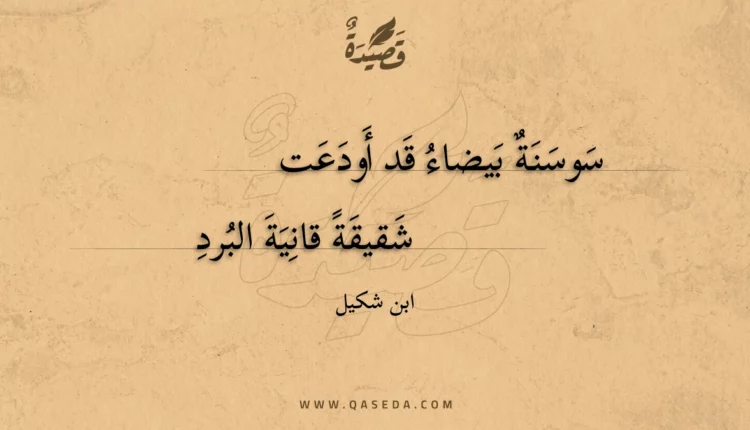 قَصِيْدَةٌ
سَوسَنَةٌ بَيضاءُ قَد أَودَعَت
شَقيقَةً قانِيَةَ البُردِ
ابن شكيل
WWW.QASEDA.COM